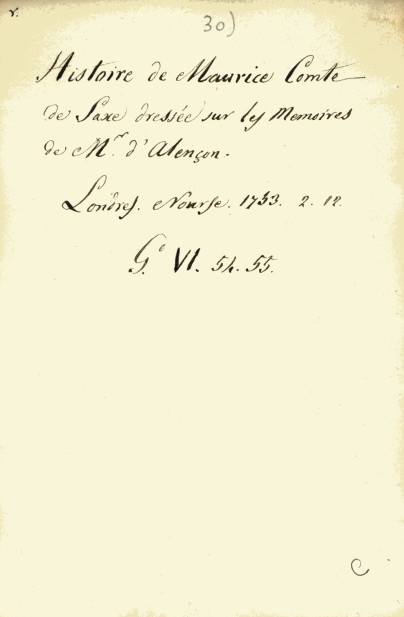 r.
30)
Histoire de Maurice Comte
de Saxe dressée sur les Memoires
de Mr. d'Alençon.
Londres. Nourse. 1753. 2. 12.
G.e VI. 54. 55.
C